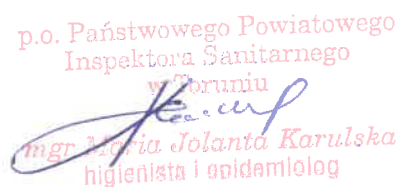 p.o. Państwowego Powiatowego
Inspektora Sanitarnego
w Toruniu
mgr Maria Jolanta Karulska
higienista i epidemiolog